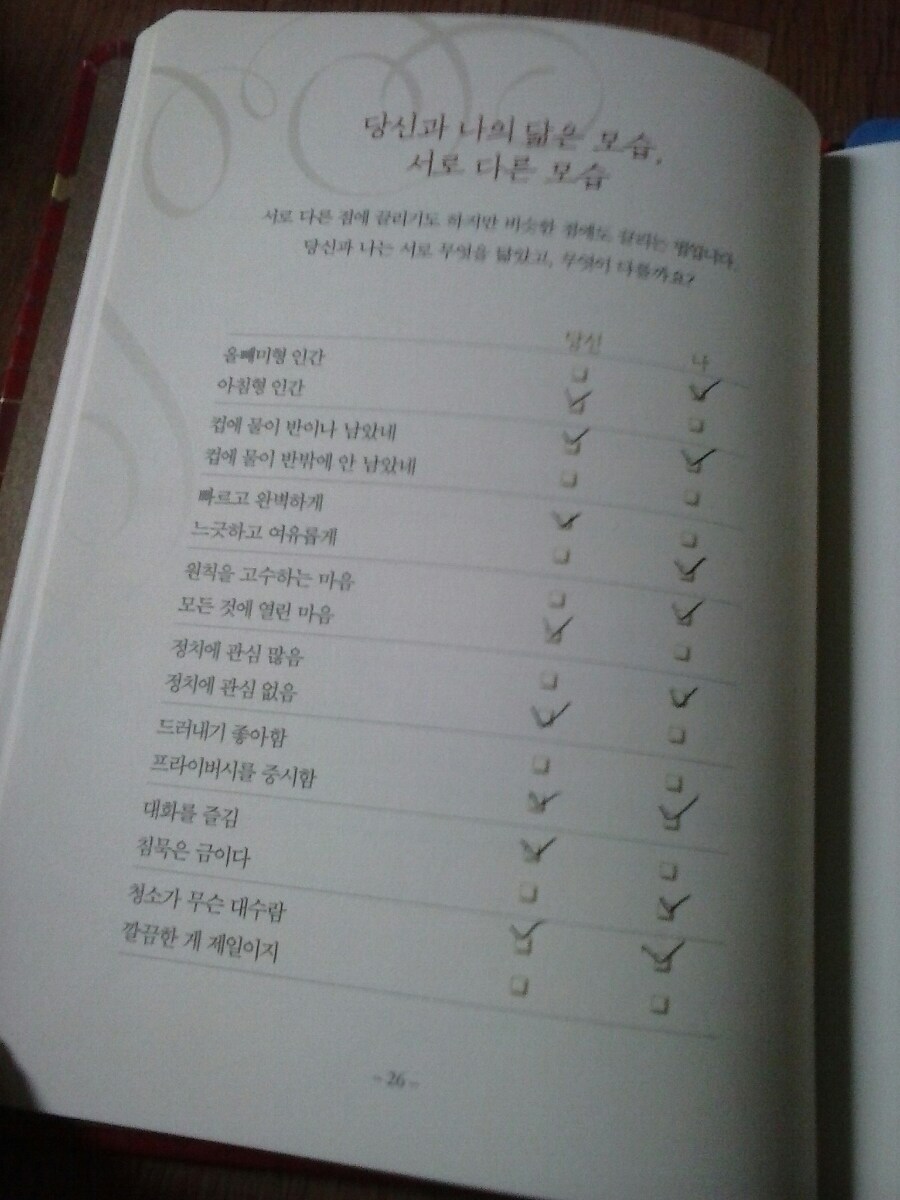 당신과 나의 닮은 모습,
서로 다른 모습
서로 다른 점에 끌리기도 하지만 비슷한 점에도 끌리는 법입니다.
당신과 나는 서로 무엇을 닮았고, 무엇이 다를까요?
당신 나
올빼미형 인간
아침형 인간
컵에 물이 반이나 남았네
컵에 물이 반밖에 안 남았네
빠르고 완벽하게
느긋하고 여유롭게
원칙을 고수하는 마음
모든 것에 열린 마음
정치에 관심 많음
정치에 관심 없음
드러내기 좋아함
프라이버시를 중시함
대화를 즐김
침묵은 금이다
청소가 무슨 대수람
깔끔한 게 제일이지
- 26 -